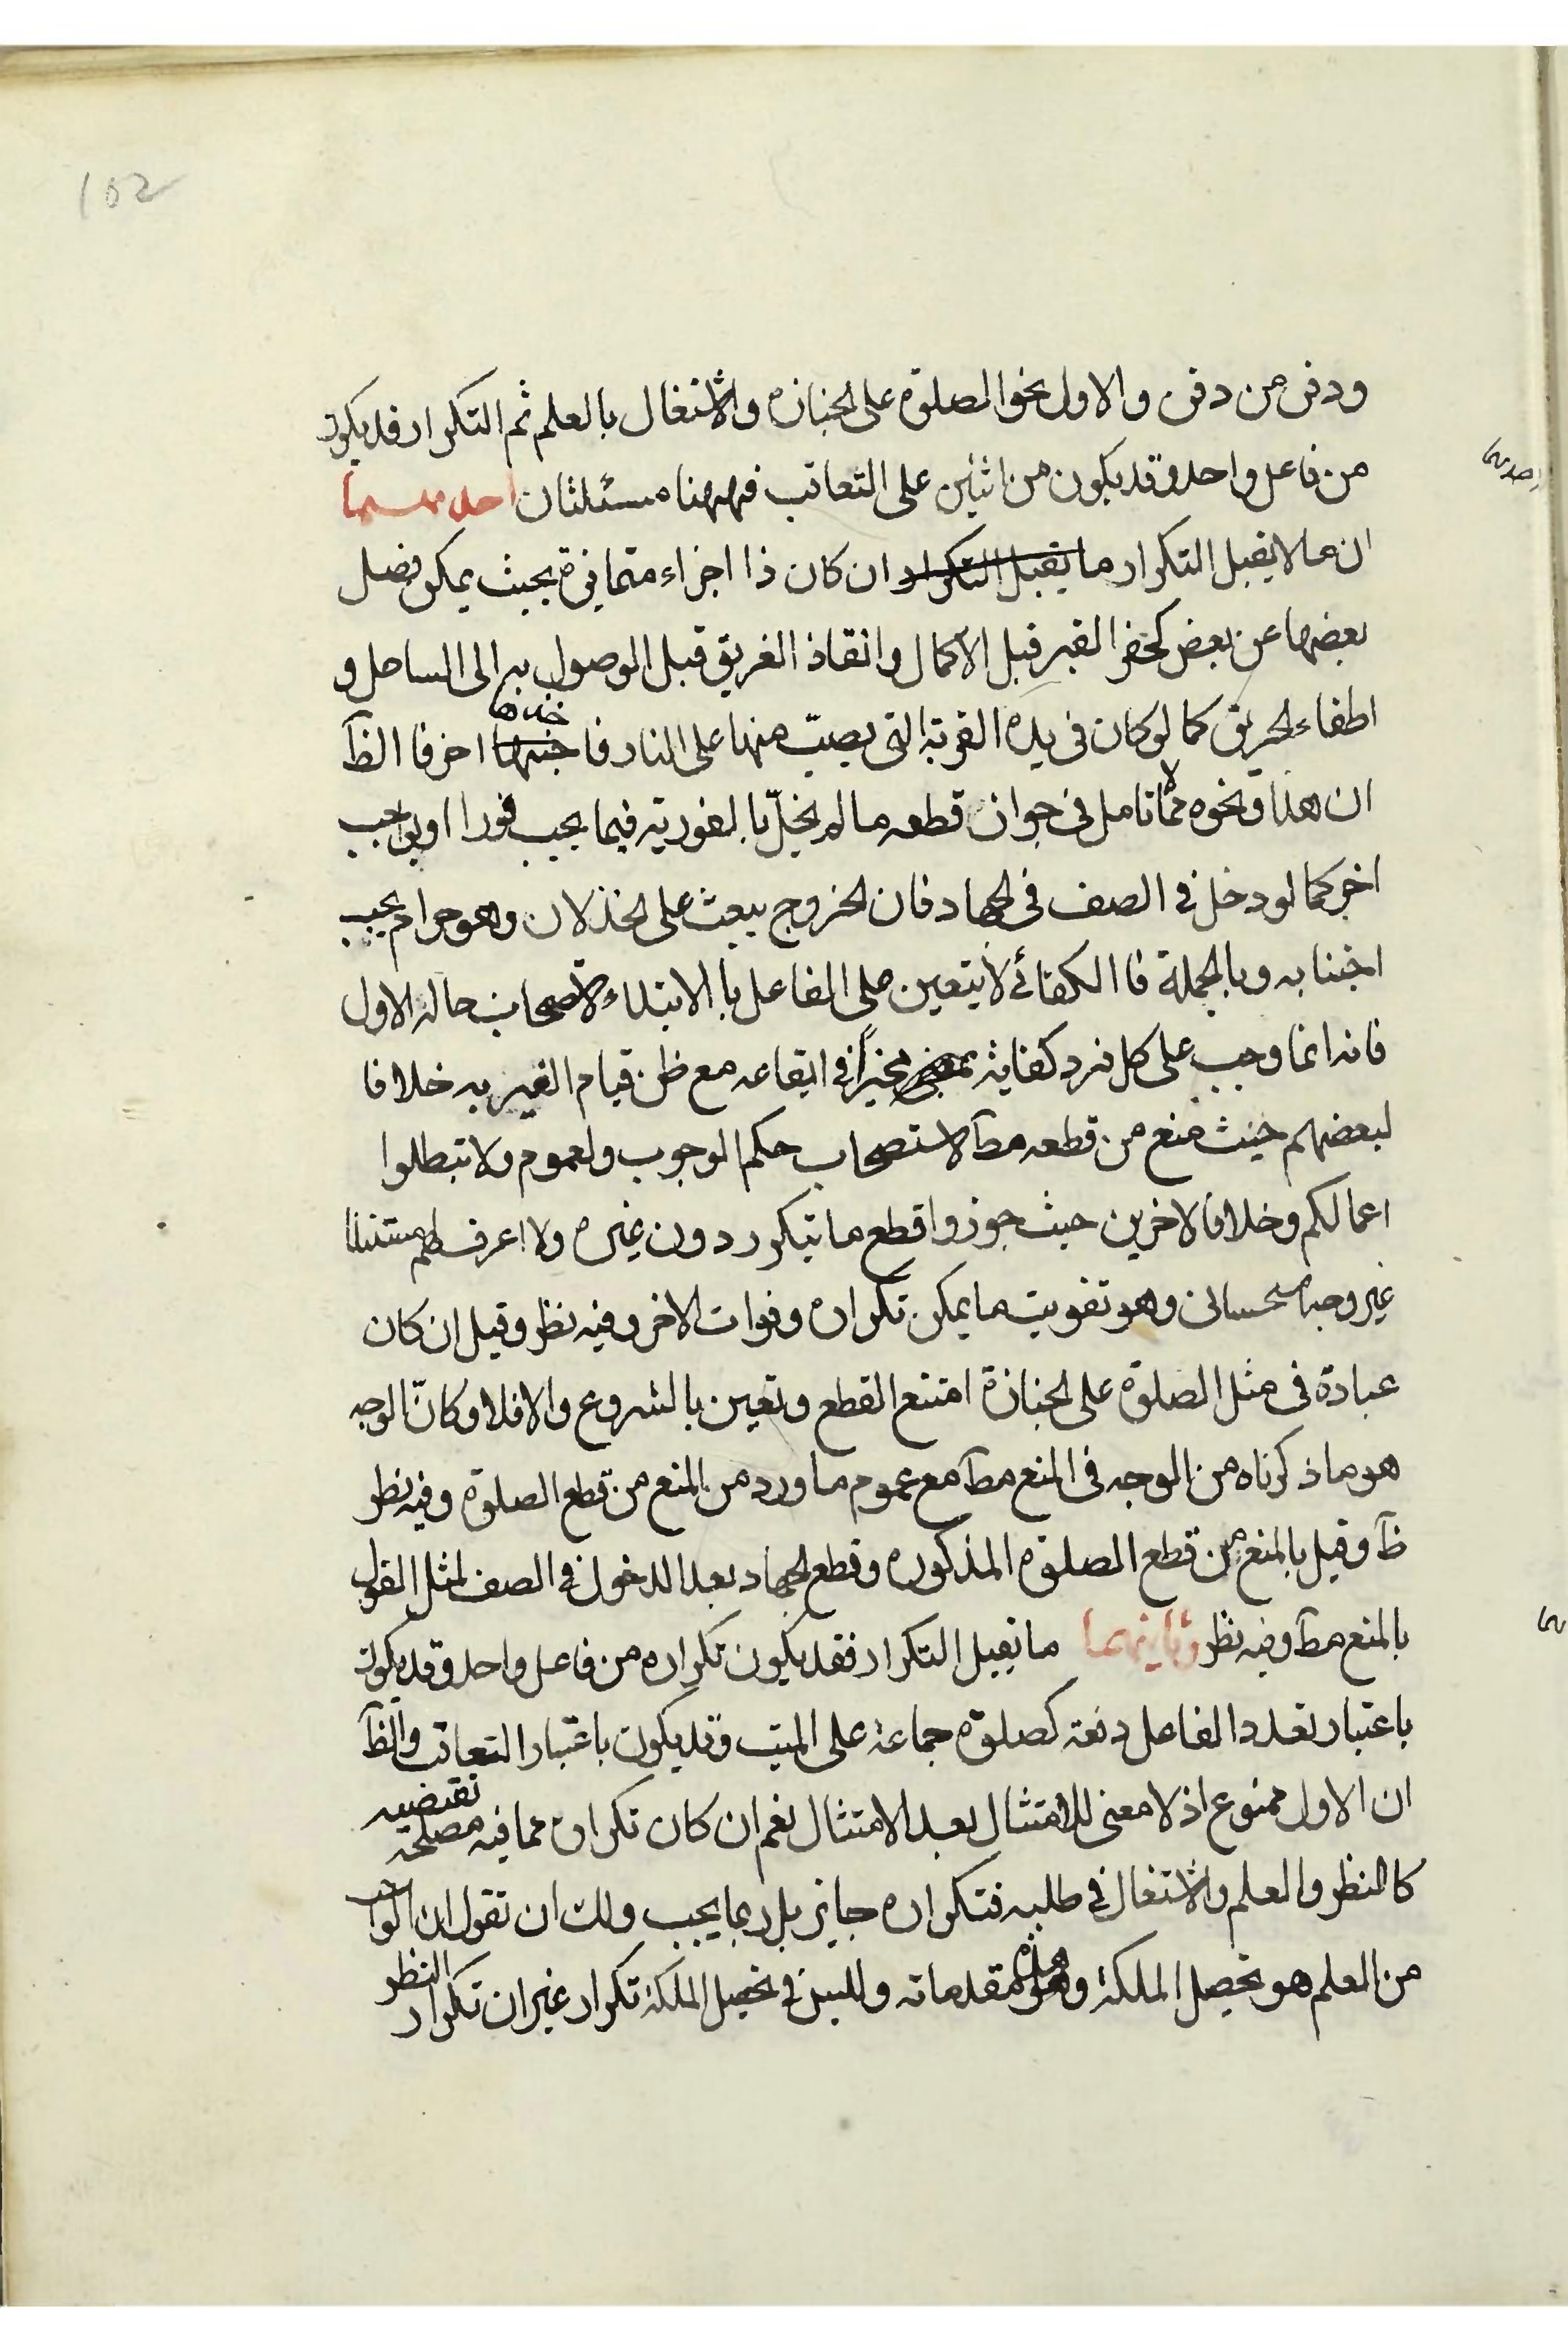 102
ودفن من دفن والاول نحو الصلوة على الجنازة والاشتغال بالعلم ثم التكرار قد يكون
من فاعل واحد وقد يكون من اثنين على التعاقب فههنا مسئلتان احدىهما
ان ما لا يقبل التكرار ما يقبل التكرار ان كان ذا اجزاء متمايزة بحيث يمكن فصل
بعضها عن بعض كحفر القبر قبل الاكمال وانقاذ الغريق قبل الوصول به الى الساحل و
اطفاء الحريق كما لو كان في يده القربة التي يصبّ منها على النار فاخذها اخر فا الظآ
ان هذا ونحوه ممّا لا تامل في جواز قطعه ما لم يخلّ بالفورية فيما يجب فورا او بواجب
اخر كما لو دخل في الصف في الجهاد فان الخروج يبعث على الخذلان وهو حرام يجب
اجتنابه وبالجملة فا الكفائے لا يتعين على الفاعل با الابتداء لاستصحاب حالة الاول
فانه انما وجب على كل فرد كفاية مخيراً في ايقاعه مع ظن قيام الغير به خلافا
لبعضهم حيث منع من قطعه مطآ لاستصحاب حكم الوجوب ولعموم ولا تبطلوا
اعمالكم وخلافا لاخرين حيث جوزوا قطع ما يتكرر دون غيره ولا اعرف لهم مستندا
غير وجه استحساني وهو تفويت ما يمكن تكراره وفوات الاخر وفيه نظر وقيل ان كان
عبادة في مثل الصلوة على الجنازة امتنع القطع وتعين بالشروع والا فلا وكانّ الوجه
هو ما ذكرناه من الوجه في المنع مطآ مع عموم ما ورد من المنع من قطع الصلوة وفيه نظر
ظآ وقيل بالمنع من قطع الصلوة المذكوره وقطع الجهاد بعد الدخول في الصف لمثل القول
بالمنع مطآ وفيه نظر وثانيهما ما يقبل التكرار فقد يكون تكراره من فاعل واحد وقد يكون
باعتبار تعدد الفاعل دفعة كصلوة جماعة على الميت وقد يكون باعتبار التعاقب والظآ
ان الاول ممنوع اذ لا معنى للامتثال بعد الامتثال نعم ان كان تكراره مما فيه مصلحة تقتضيه
كالنظر والعلم والاشتغال في طلبه فتكراره جايز بل ربما يجب ولك ان تقول ان الواجب
من العلم هو تحصيل الملكة وهذه مقدماته وليس في تحصيل الملكة تكرار غير ان تكرار النظر